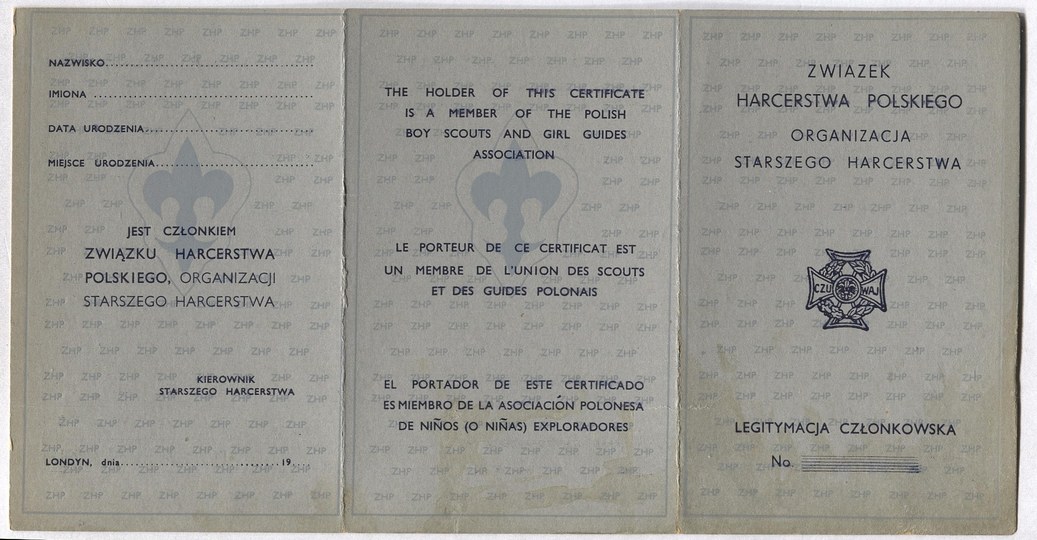 NAZWISKO
IMIONA
DATA URODZENIA
MIEJSCE URODZENIA
JEST CZŁONKIEM
ZWIĄZKU HARCERSTWA
POLSKIEGO, ORGANIZACJI
STARSZEGO HARCERSTWA
KIEROWNIK
STARSZEGO HARCERSTWA
LONDYN, dnia 19
THE HOLDER OF THIS CERTIFICATE
IS A MEMBER OF THE POLISH
BOY SCOUTS AND GIRL GUIDES
ASSOCIATION
LE PORTEUR DE CE CERTIFICAT EST
UN MEMBRE DE L'UNION DES SCOUTS
ET DES GUIDES POLONAIS
EL PORTADOR DE ESTE CERTIFICADO
ES MIEMBRO DE LA ASOCIACIÓN POLONESA
DE NIÑOS (O NIÑAS) EXPLORADORES
ZWIAZEK
HARCERSTWA POLSKIEGO
ORGANIZACJA
STARSZEGO HARCERSTWA
CZU WAJ
LEGITYMACJA CZŁONKOWSKA
No.